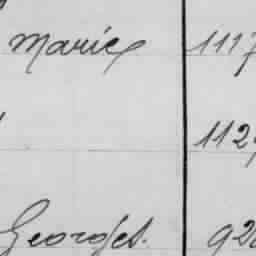 Marie 1117
112
Georges. 92